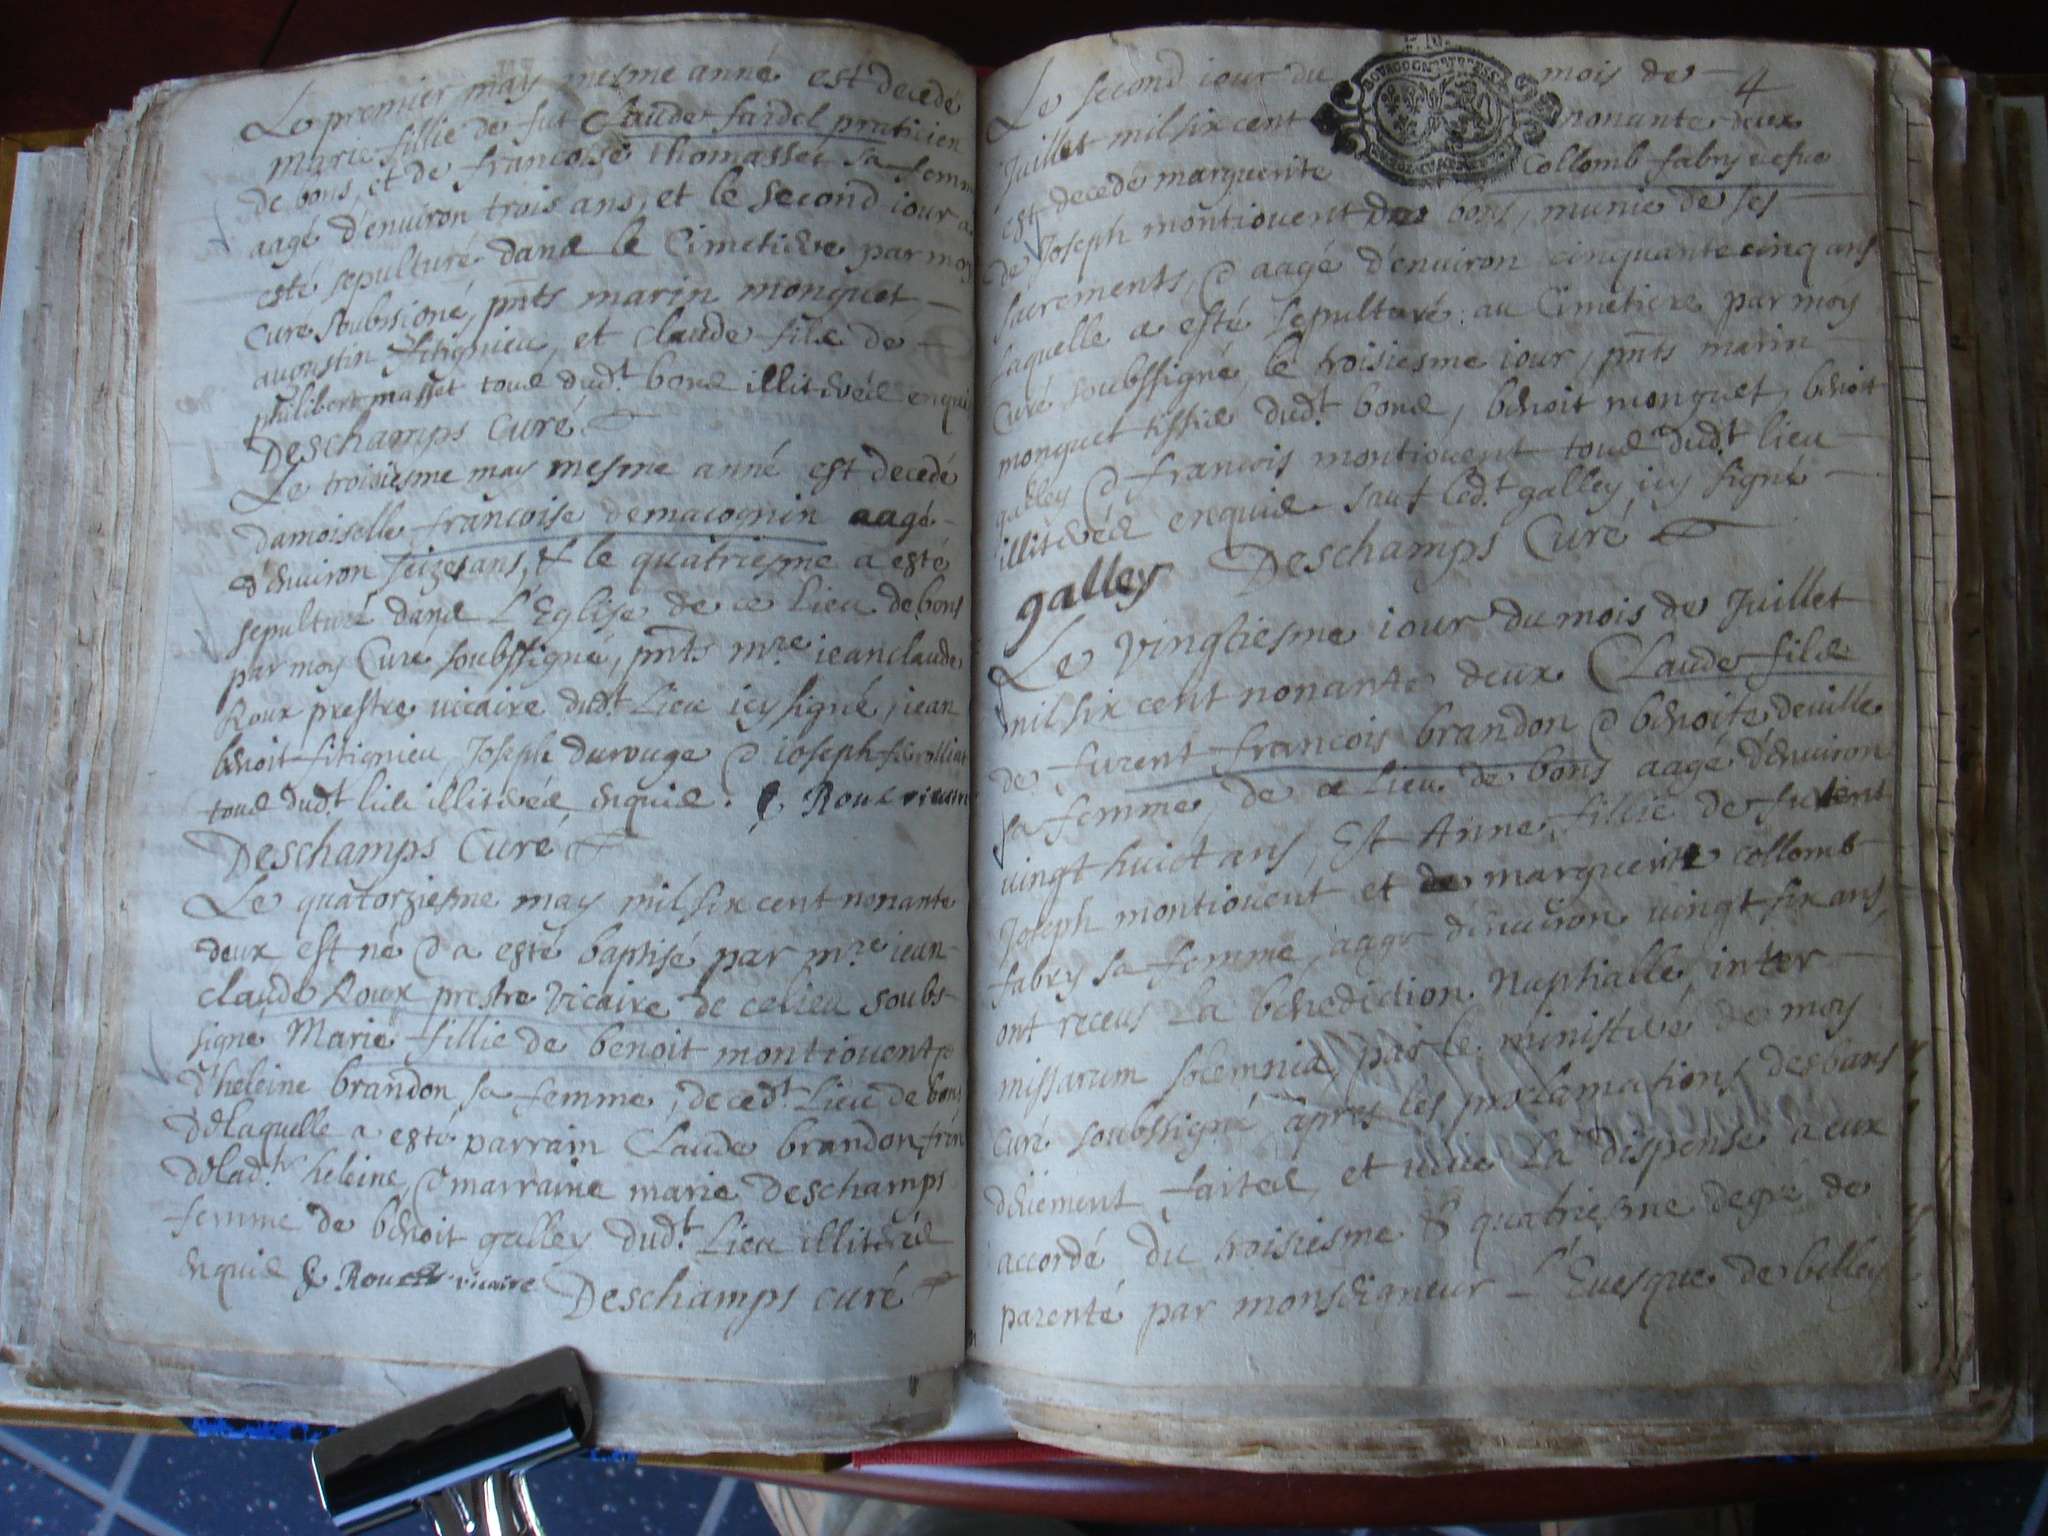 Le premier may mesme anné est decedé
Marie fillie de fut Claude fardel praticien
de bons, et de francoise thomasset sa femm
aagé d'environ trois ans, et le second iour a
esté sepulturé dans le Cimetiere par moy
Curé soubsigné, pnts marin monguet,
augustin fitignieu, et Claude fils de
philibert masset tous dudt bons illiterés enquis
Deschamps Curé
Le troisiesme may mesme anné est decedé
Damoiselle francoise demacognin aagé
d'environ seize ans, & le quatriesme a esté
sepulturé dans L'Eglise de ce Lieu de bons
par moy Curé soubssigné, pnts mre iean claude
Roux prestre vicaire dudt Lieu icy signé, iean
benoit fitignieu, Joseph durouge & ioseph
tous dudt lieu illiterés enquis. Roux vicaire
Deschamps Curé
Le quatorziesme may mil six cent nonante
deux est né & a esté baptisé par mre iean
claude Roux prestre vicaire de ce lieu soubs
signé Marie fillie de benoit montiouent &
d'heleine brandon sa femme, de cedt Lieu de bons
de laquelle a esté parrain Claude brandon frere
de ladte heleine, & marraine marie Deschamps
femme de benoit galley dudt Lieu illiterés
enquis Roux vicaire
Deschamps curé
4
Le second iour du mois de
Juillet mil six cent nonante deux
est decedé marguerite Collomb fabry vefve
de Joseph montiouent de bons, munie de ses
sacrements, & aagé d'environ cinquante cinq ans
Laquelle a esté sepulturé au Cimetiere par moy
Curé soubssigné, le troisiesme iour, pnts marin
monguet tissier dudt bons, benoit monguet, benoit
galley & francois montiouent tous dudt lieu
illiterés enquis sauf ledt galley icy signé
galley Deschamps Curé
Le vingtiesme iour du mois de Juillet
mil six cent nonante deux Claude fils
de furent francois brandon & benoite deville
sa femme, de ce Lieu de bons aagé d'environ
vingt huict ans, Est Anne fillie de furent
Joseph montiouent et de marguerite collomb
fabry sa femme, aagé d'environ vingt six ans,
ont receus La benediction Naptialle, inter
missarum solemnia, par le ministere de moy
Curé soubssigné apres les proclamations des bans
deüement faites, et veue La dispense a eux
accordé du troisiesme & quatriesme degré de
parenté par monseigneur L'Evesque de belley